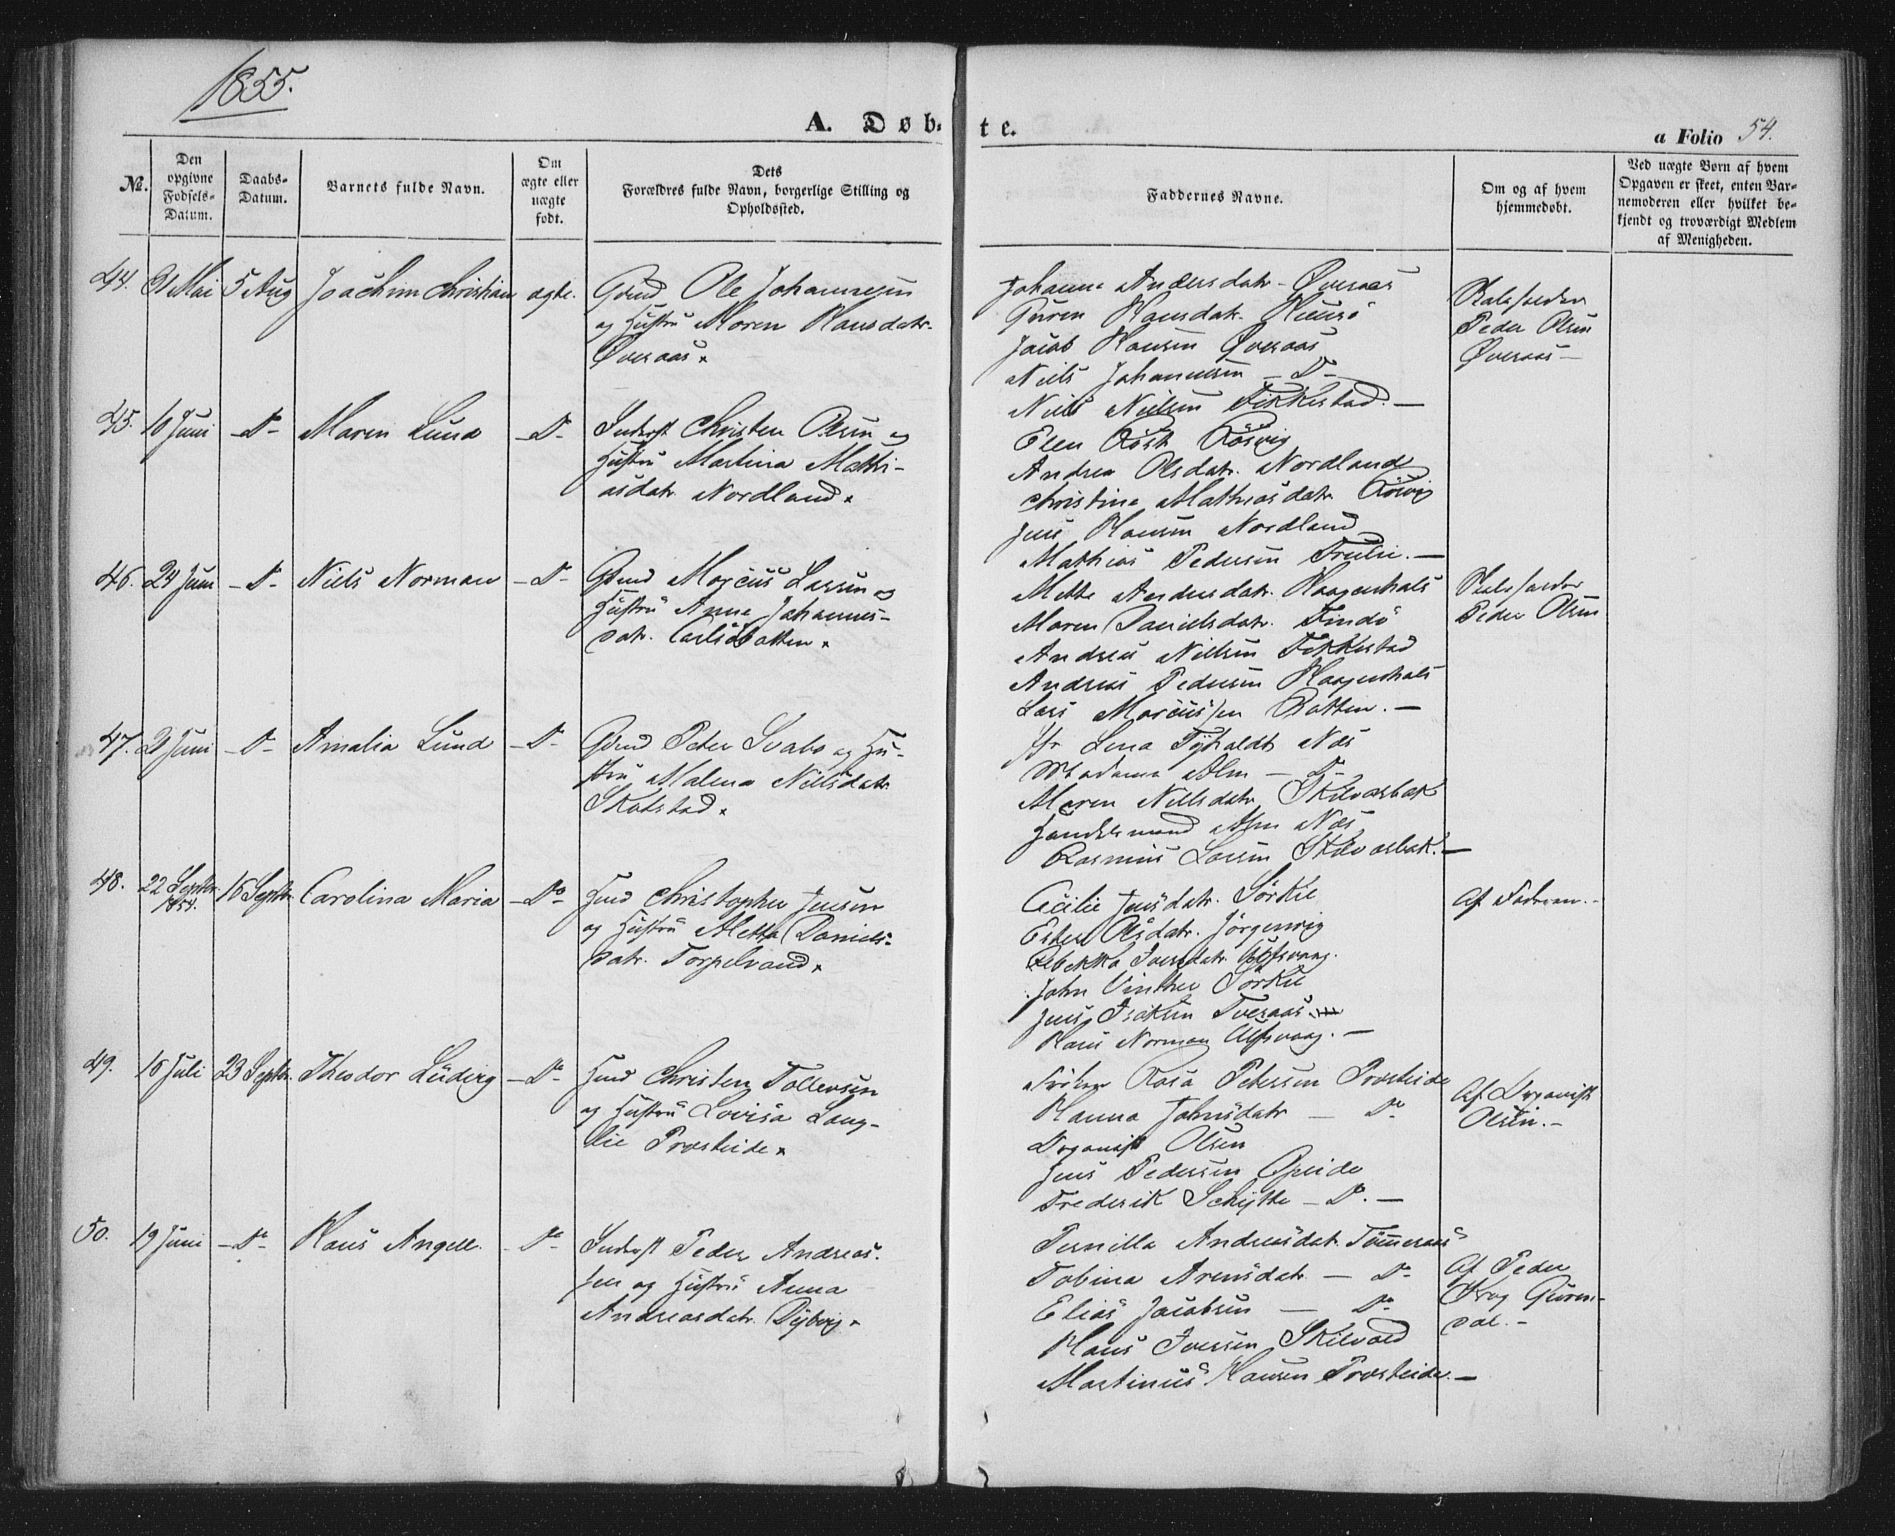 1855.
A. Døb-te.
a Folio 54.
No.
Den opgivne Fødsels-Datum.
Daabs-Datum.
Barnets fulde Navn.
Om ægte eller uægte født.
Dets Forældres fulde Navn, borgerlige Stilling og Opholdssted.
Faddernes Navne.
Om og af hvem hjemmedøbt.
Ved uægte Børn af hvem Opgaven er skeet, enten Barnemoderen eller hvilket bekjendt og troværdigt Medlem af Menigheden.
44. 31 Mai 5 Aug Joachim Christian ægte.
Gmd Ole Johannesen
og Hustru Maren Hansdatr.
Øveraas.
Johanna Andersdatr - Øveraas
Guren Hansdatr.
Jacob Hansen Øveraas
Niels Johannesen - Do -
Niels Nielsen Fikkestad. -
Peder Olsen
Øveraas -
45. 10 Juni - Do - Maren Lund - Do -
Inderst Christen Olsen og
Hustru Martina Mathi-
asdatr Nordland.
Elen Røst Røsvig
Andrea Olsdatr. Nordland
Christina Mathiasdatr Røsvig
Jens Hansen Nordland
Mathias Pedersen
46. 24 Juni - Do - Niels Norman - Do -
Gmd Marcus Larsen og
Hustru Anna Johannes-
datr.
Mette Andersdatr. Haagenhals
Maren Danielsdatr. Findø
Andreas Nielsen Fikkestad
Andreas Pedersen Haagenhals
Lars Marcussen Botten. -
Peder Olsen
47. 2 Juni - Do - Amalia Lund - Do -
Gmd Peter Svabo og Hu-
stru Malena Nielsdatr
Skatstad.
Jfr Lena Tyholdt Næs
Madame Alm - Do -
Maren Nielsdatr Skilvasbak
Handelsmand Alm Næs
Rasmus Larsen Skilvasbak. -
48. 22 Septbr. 1854. 16 Septbr. Carolina Maria - Do -
Hmd Christopher Jensen
og Hustru Metta Daniels-
datr. Torpelvand.
Cecilie Jensdatr. Sørkil
Ester Olsdatr. Jørgenvig
Rebekka Iversdatr. Alfsvaag.
John Vinther Sørkil
Jens Isaksen Tveraas.
Hans Norman Alfsvaag. -
Af Faderen. -
49. 16 Juli 23 Septbr. Theodor Ludvig - Do -
Hmd Christen Tollevsen
og Hustru Lovisa Lang-
lie Presteide.
Frøken Rosa Petersen Presteide
Hanna Johnsdatr - Do -
Organist Olsen
Jens Pedersen Opeide
Frederik Schytte - Do. -
Af Organist
Olsen. -
50. 19 Juni - Do - Hans Angell. - Do -
Inderst Peder Andreas-
sen og Hustru Anna
Andreasdatr. Dybvig.
Pernilla Andreasdatr. Tømmeraas
Tobina Arensdatr - Do -
Elias Jacobsen - Do -
Hans Iversen Skilvold
Martinus Hansen Presteide. -
Af Peder
Krog Guren-
dal. -